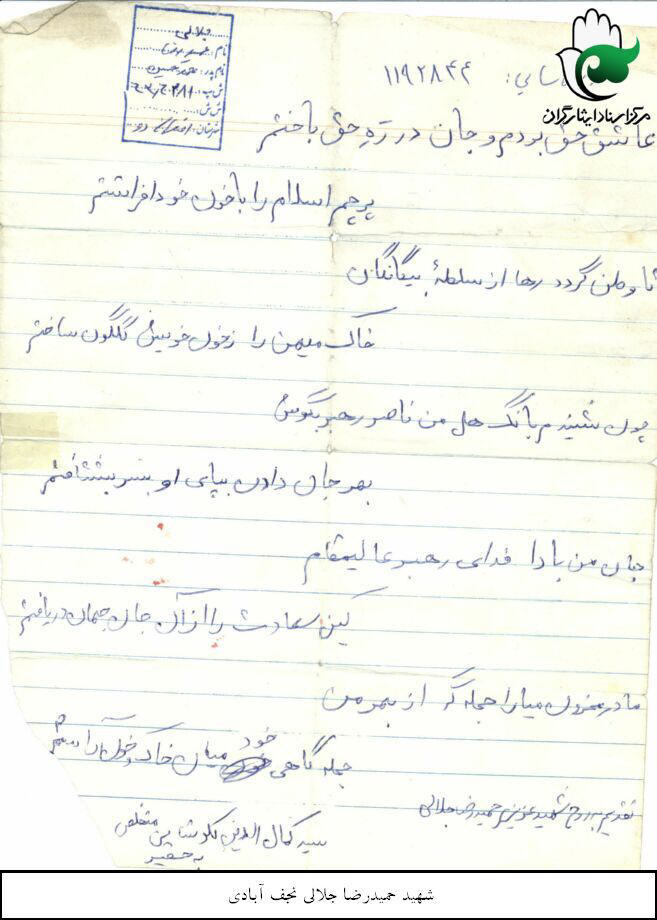 جلالی
نام: حمیدرضا
نام پدر: محمدحسین
ش پ:
ش ش:
شهرستان:
سایی: ۱۱۹۲۸۴۴
مرکز اسناد ایثارگران
عاشق حق بودم و جان در ره حق باختم
پرچم اسلام را با خون خود افراشتم
تا وطن گردد رها از سلطهٔ بیگانگان
خاک میهن را زخون خویش گلگون ساختم
چون شنیدم بانگ هل من ناصر رهبر بگوش
بهر جان دادن بپای او بسر بشتافتم
جان من بادا فدای رهبر عالیمقام
کین سعادت را از آن جان جهان دریافتم
مادر محزون میارا حجله گه از بهر من
حجله گاهی خود میان خاک و خون آراستم
تقدیم به روح شهید عزیز حمیدرضا جلالی
سید کمال الدین نکوشان متخلص
به حقیر
شهید حمیدرضا جلالی نجف آبادی